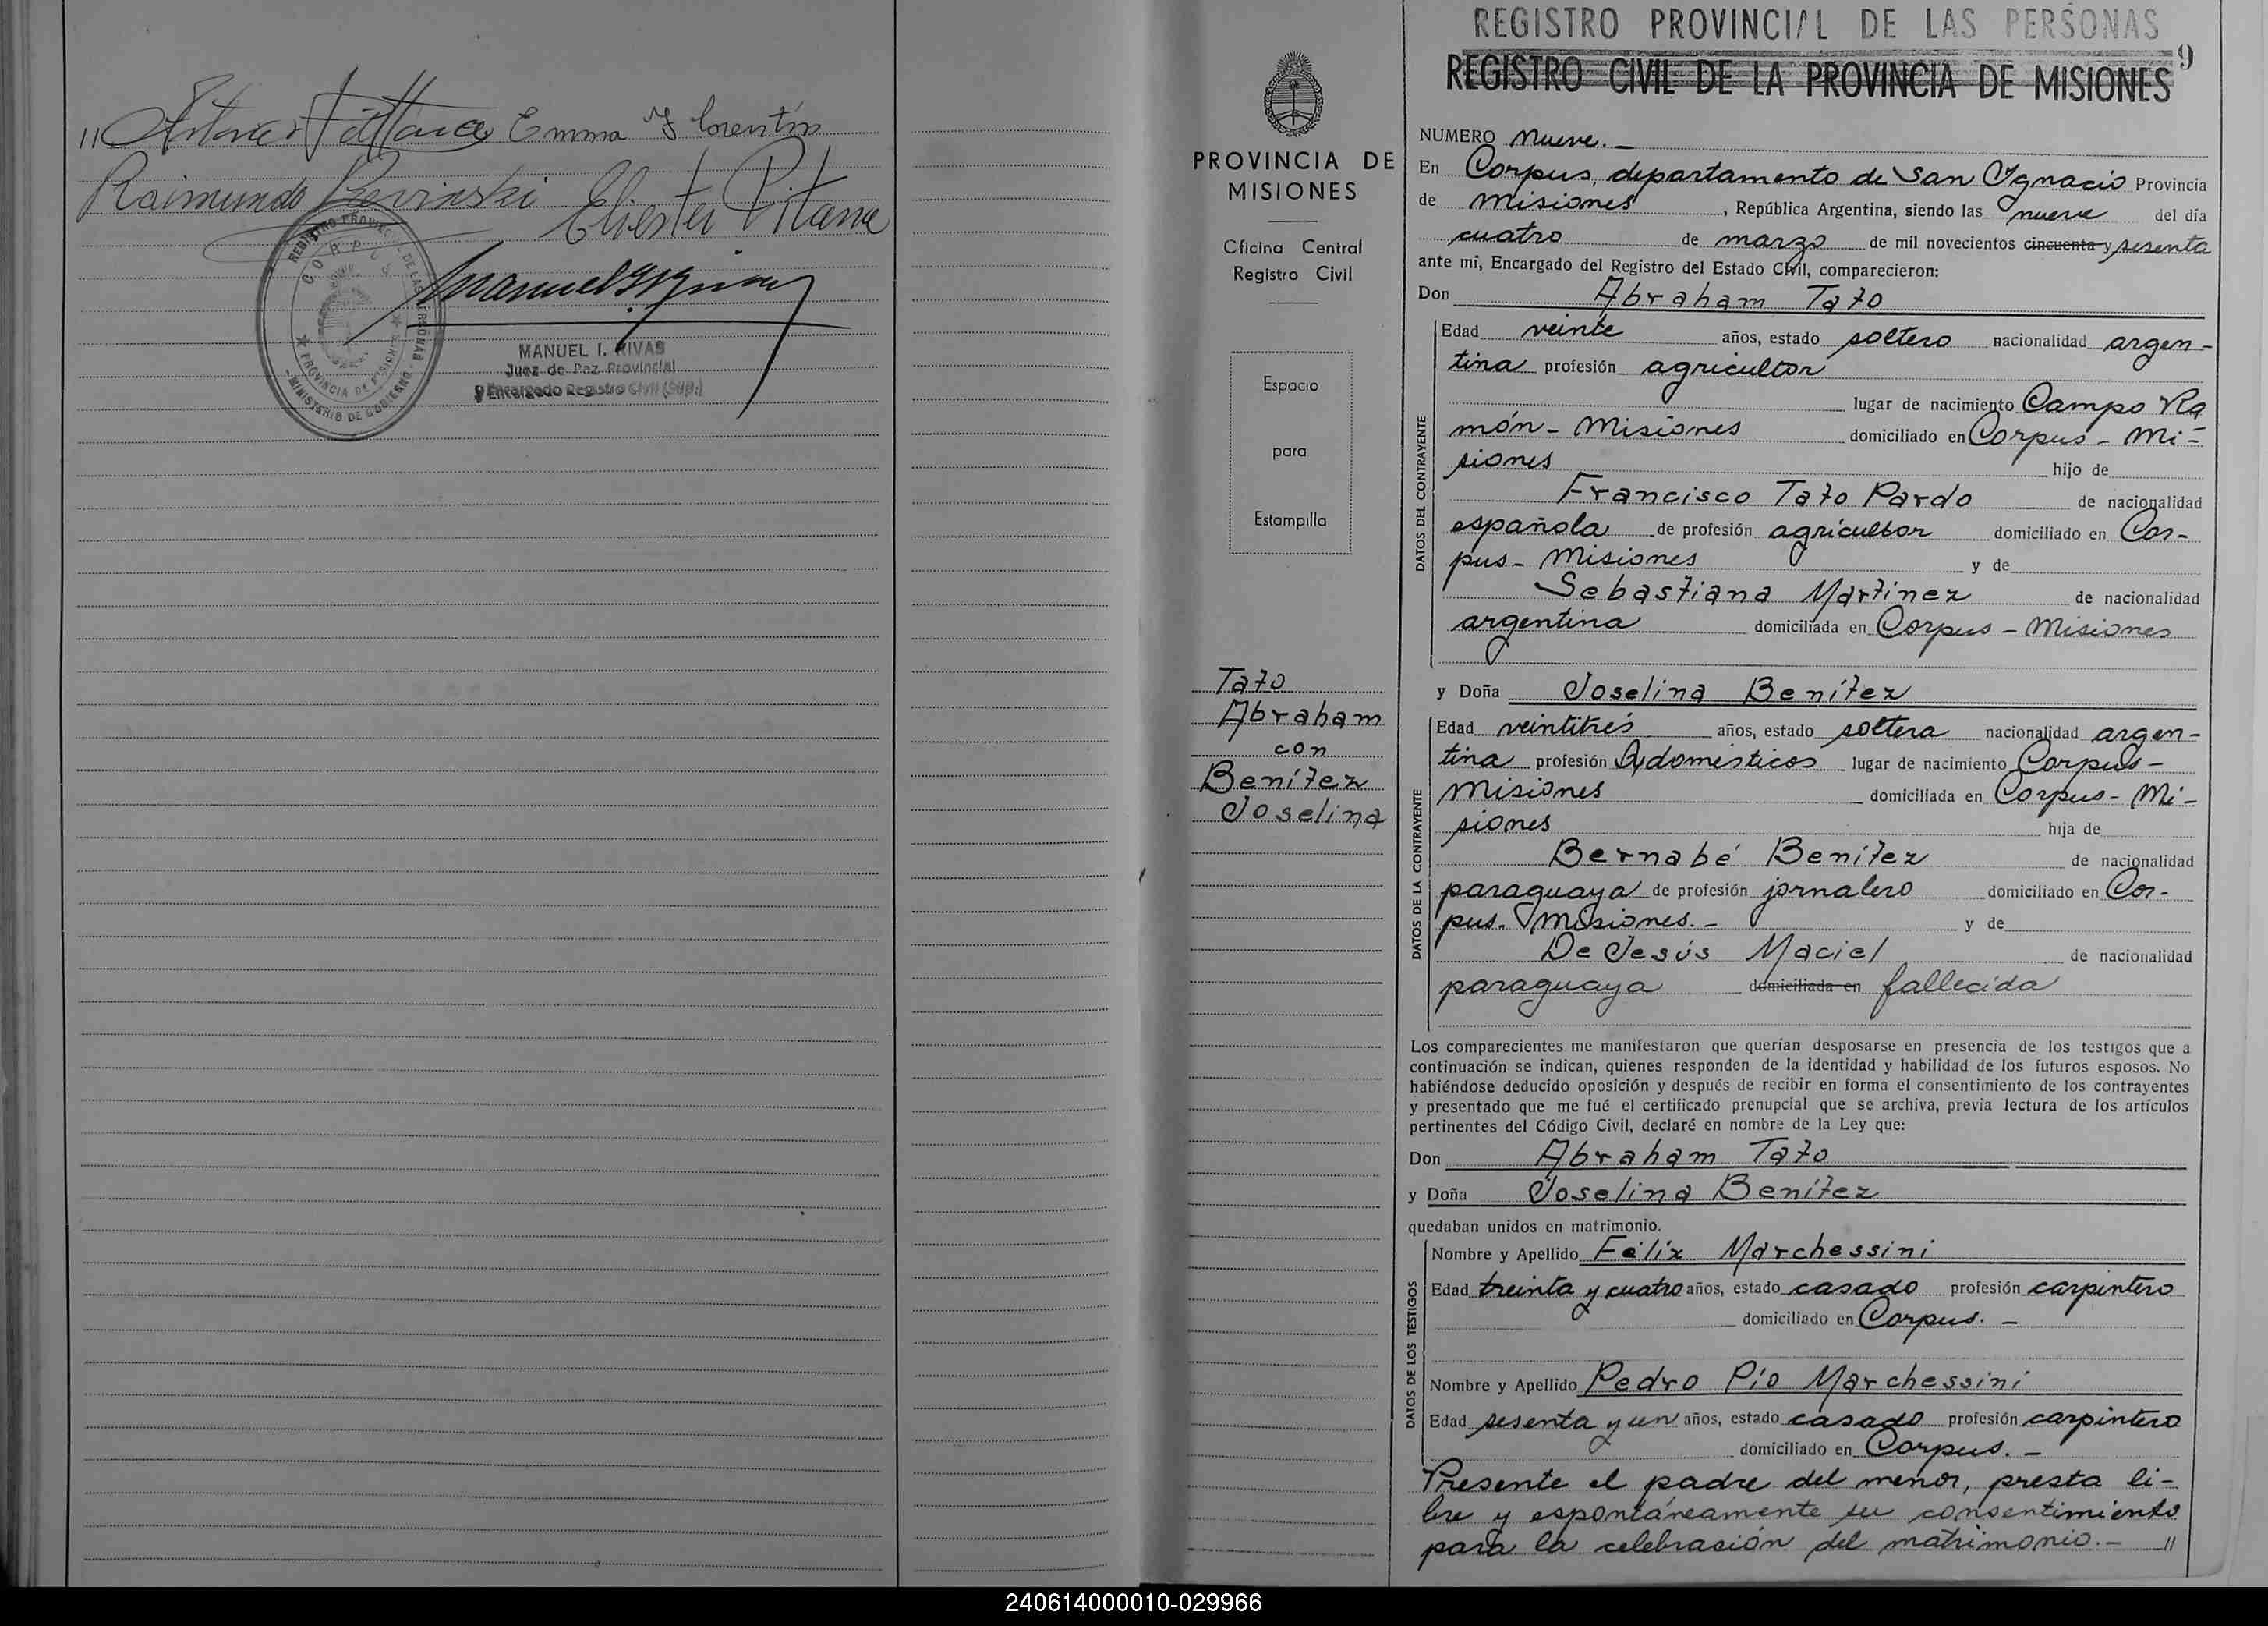 Emma Florentín
Raimundo
Eliester Pitana
REGISTRO PROVINCIAL DE LAS PERSONAS
CORPUS
★ PROVINCIA DE MISIONES ★
- MINISTERIO DE GOBIERNO -
MANUEL I. RIVAS
Juez de Paz Provincial
y Encargado Registro Civil (Sup.)
PROVINCIA DE
MISIONES
Oficina Central
Registro Civil
Espacio
para
Estampilla
Tazo
Abraham
con
Benítez
Joselina
REGISTRO PROVINCIAL DE LAS PERSONAS
9
REGISTRO CIVIL DE LA PROVINCIA DE MISIONES
NUMERO nueve.-
En Corpus, departamento de San Ygnacio Provincia
de Misiones, República Argentina, siendo las nueve del día
cuatro de marzo de mil novecientos cincuenta y sesenta
ante mí, Encargado del Registro del Estado Civil, comparecieron:
Don Abraham Tazo
Edad veinte años, estado soltero nacionalidad argen-
tina profesión agricultor
lugar de nacimiento Campo Ra
món - Misiones domiciliado en Corpus - Mi-
siones hijo de
Francisco Tazo Pardo de nacionalidad
española de profesión agricultor domiciliado en Cor-
pus - Misiones y de
Sebastiana Martinez de nacionalidad
argentina domiciliada en Corpus - Misiones
DATOS DEL CONTRAYENTE
y Doña Joselina Benítez
Edad veintitrés años, estado soltera nacionalidad argen-
tina profesión Q/domésticos lugar de nacimiento Corpus -
Misiones domiciliada en Corpus - Mi-
siones hija de
Bernabé Benítez de nacionalidad
paraguaya de profesión jornalero domiciliado en Cor-
pus. Misiones.- y de
De Jesús Maciel de nacionalidad
paraguaya domiciliada en fallecida
DATOS DE LA CONTRAYENTE
Los comparecientes me manifestaron que querían desposarse en presencia de los testigos que a
continuación se indican, quienes responden de la identidad y habilidad de los futuros esposos. No
habiéndose deducido oposición y después de recibir en forma el consentimiento de los contrayentes
y presentado que me fué el certificado prenupcial que se archiva, previa lectura de los artículos
pertinentes del Código Civil, declaré en nombre de la Ley que:
Don Abraham Tazo
y Doña Joselina Benítez
quedaban unidos en matrimonio.
Nombre y Apellido Félix Marchessini
Edad treinta y cuatro años, estado casado profesión carpintero
domiciliado en Corpus. -
Nombre y Apellido Pedro Pío Marchessini
Edad sesenta y un años, estado casado profesión carpintero
domiciliado en Corpus. -
DATOS DE LOS TESTIGOS
Presente el padre del menor, presta li-
bre y espontáneamente su consentimiento
para la celebración del matrimonio.- //
240614000010-029966